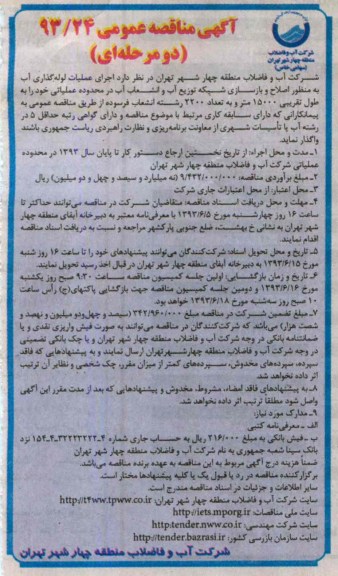 آگهی مناقصه عمومی ۹۳/۲۴
(دو مرحله‌ای)
شرکت آب و فاضلاب
منطقه چهار شهر تهران
(سهامی خاص)
شرکت آب و فاضلاب منطقه چهار شهر تهران در نظر دارد اجرای عملیات لوله‌گذاری آب
به منظور اصلاح و بازسازی شبکه توزیع آب و انشعاب آب در محدوده عملیاتی خود را به
طول تقریبی ۱۵۰۰۰ متر و به تعداد ۲۲۰۰ رشته انشعاب فرسوده از طریق مناقصه عمومی به
پیمانکارانی که دارای سابقه کاری مرتبط با موضوع مناقصه و دارای گواهی رتبه حداقل ۵ در
رشته آب یا تأسیسات شهری از معاونت برنامه‌ریزی و نظارت راهبردی ریاست جمهوری باشند
واگذار نماید.
۱ـ مدت و محل اجراء: از تاریخ نخستین ارجاع دستور کار تا پایان سال ۱۳۹۳ در محدوده
عملیاتی شرکت آب و فاضلاب منطقه چهار شهر تهران
۲ـ مبلغ برآوردی مناقصه: ۹/۴۳۲/۰۰۰/۰۰۰ (نه میلیارد و سیصد و چهل و دو میلیون) ریال
۳ـ محل اعتبار: از محل اعتبارات جاری شرکت
۴ـ مهلت و محل دریافت اسناد مناقصه: متقاضیان شرکت در مناقصه می‌توانند حداکثر تا
ساعت ۱۶ روز چهارشنبه مورخ ۱۳۹۳/۶/۵ با معرفی‌نامه معتبر به دبیرخانه آبفای منطقه چهار
شهر تهران به نشانی خ بهشت، ضلع جنوبی پارکشهر مراجعه و نسبت به دریافت اسناد مناقصه
اقدام نمایند.
۵ـ تاریخ و محل تحویل اسناد: شرکت‌کنندگان می‌توانند پیشنهادهای خود را تا ساعت ۱۶ روز شنبه
مورخ ۱۳۹۳/۶/۱۵ به دبیرخانه آبفای منطقه چهار شهر تهران در قبال اخذ رسید تحویل نمایند.
۶ـ تاریخ و زمان بازگشایی: اولین جلسه کمیسیون مناقصه ساعت ۹:۳۰ صبح روز یکشنبه
مورخ ۱۳۹۳/۶/۱۶ و دومین جلسه کمیسیون مناقصه جهت بازگشایی پاکتهای(ج) رأس ساعت
۱۰ صبح روز سه‌شنبه مورخ ۱۳۹۳/۶/۱۸ خواهد بود.
۷ـ مبلغ تضمین شرکت در مناقصه مبلغ ۳۴۲/۹۶۰/۰۰۰ (سیصد و چهل‌ودو میلیون و نهصد و
شصت هزار) می‌باشد که شرکت‌کنندگان در مناقصه می‌توانند به صورت فیش واریزی نقدی و یا
ضمانتنامه بانکی در وجه شرکت آب و فاضلاب منطقه چهار شهر تهران و یا چک بانکی تضمینی
در وجه شرکت آب و فاضلاب منطقه چهارشهرتهران ارسال نمایند و به پیشنهادهایی که فاقد
سپرده، سپرده‌های مخدوش، سپرده‌های کمتر از میزان مقرر، چک شخصی و نظایر آن ترتیب
اثر داده نخواهد شد.
۸ـ به پیشنهادهای فاقد امضاء، مشروط، مخدوش و پیشنهادهایی که بعد از مدت مقرر این آگهی
واصل شود مطلقاً ترتیب اثر داده نخواهد شد.
۹ـ مدارک مورد نیاز:
الف ـ معرفی‌نامه کتبی
ب ـ فیش بانکی به مبلغ ۲۱۶/۰۰۰ ریال به حساب جاری شماره ۱۵۴-۴-۳۲۲۲۲۲۲-۴ نزد
بانک سینا شعبه جمهوری به نام شرکت آب و فاضلاب منطقه چهار شهر تهران
ضمناً هزینه درج آگهی مربوط به این مناقصه به عهده برنده مناقصه می‌باشد.
برگزارکننده مناقصه در رد یا قبول یک یا کلیه پیشنهادها مختار است.
سایر اطلاعات و جزئیات در اسناد مناقصه مندرج است.
سایت شرکت آب و فاضلاب منطقه چهار شهر تهران: http://t4ww.tpww.co.ir
سایت ملی مناقصات: http://iets.mporg.ir
سایت شرکت مهندسی: http:tender.nww.co.ir
سایت سازمان بازرسی کشور: http://tender.bazrasi.ir
شرکت آب و فاضلاب منطقه چهار شهر تهران